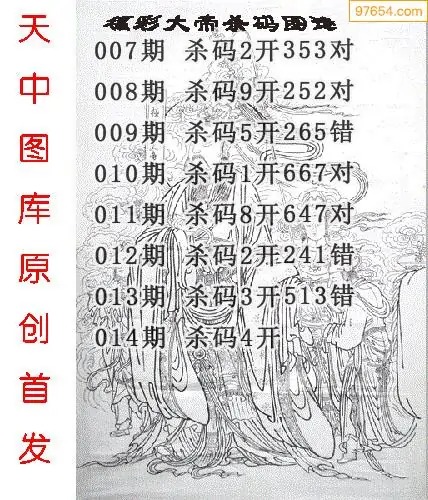 97654.com
福彩大帝杀码图谜
007期 杀码2开353对
008期 杀码9开252对
009期 杀码5开265错
010期 杀码1开667对
011期 杀码8开647对
012期 杀码2开241错
013期 杀码3开513错
014期 杀码4开
天中图库原创首发